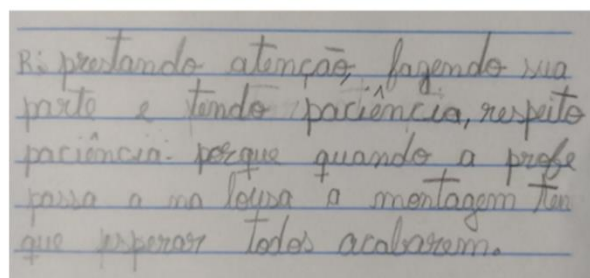 R: prestando atenção, fazendo sua
parte e tendo paciência, respeito
paciência. porque quando a profe
passa a na lousa a montagem ten
que esperar todos acabarem.